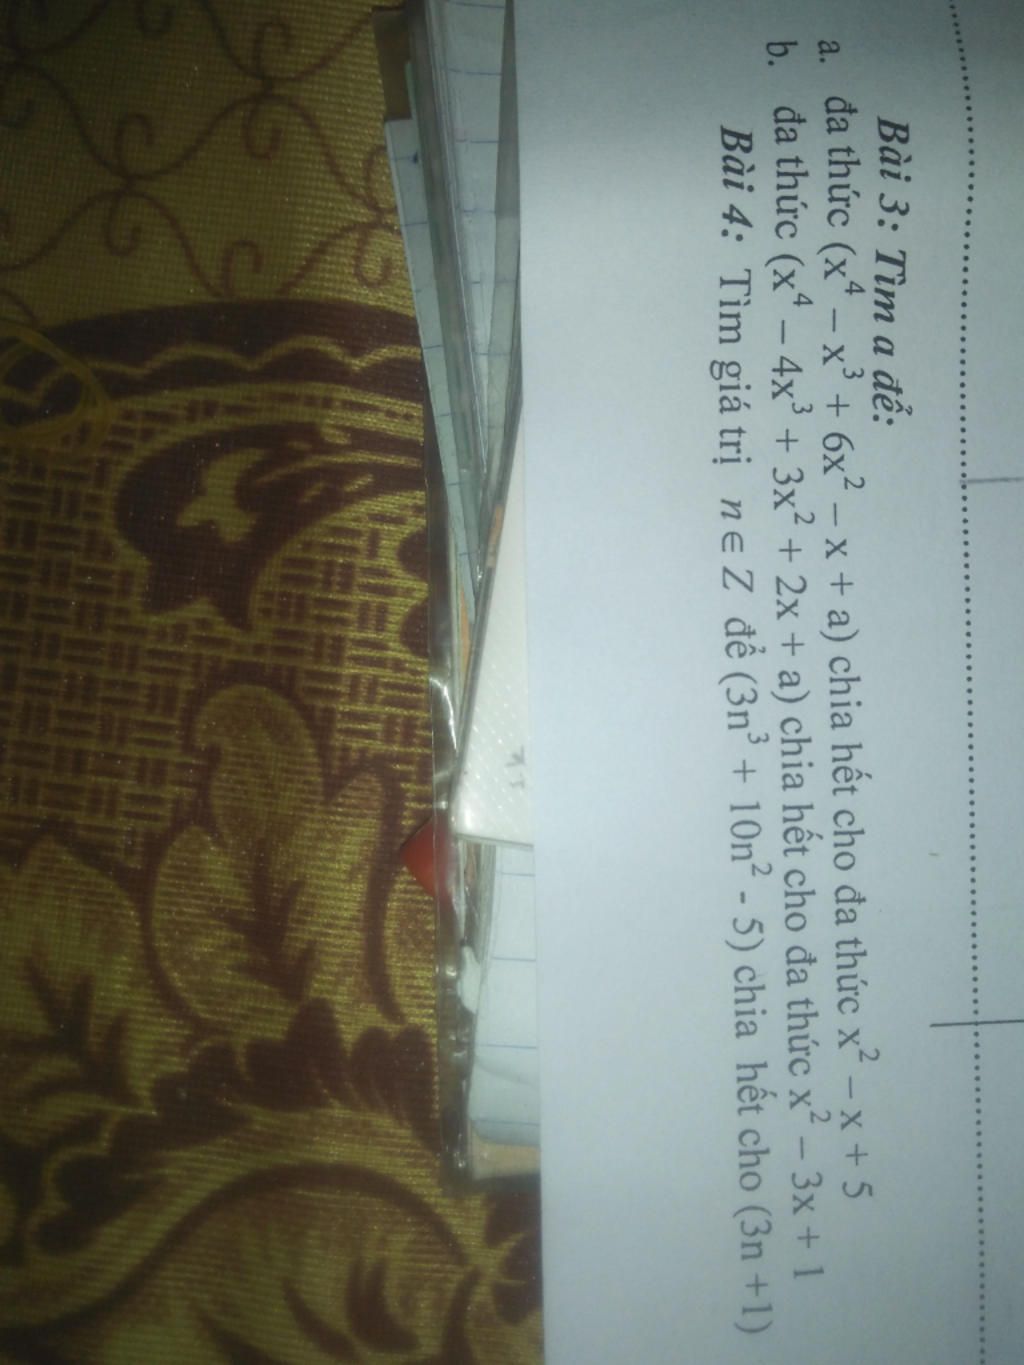 Bài 3: Tìm a để:
a. đa thức (x⁴ – x³ + 6x² – x + a) chia hết cho đa thức x² – x + 5
b. đa thức (x⁴ – 4x³ + 3x² + 2x + a) chia hết cho đa thức x² – 3x + 1
Bài 4: Tìm giá trị n ∈ Z để (3n³ + 10n² - 5) chia hết cho (3n +1)